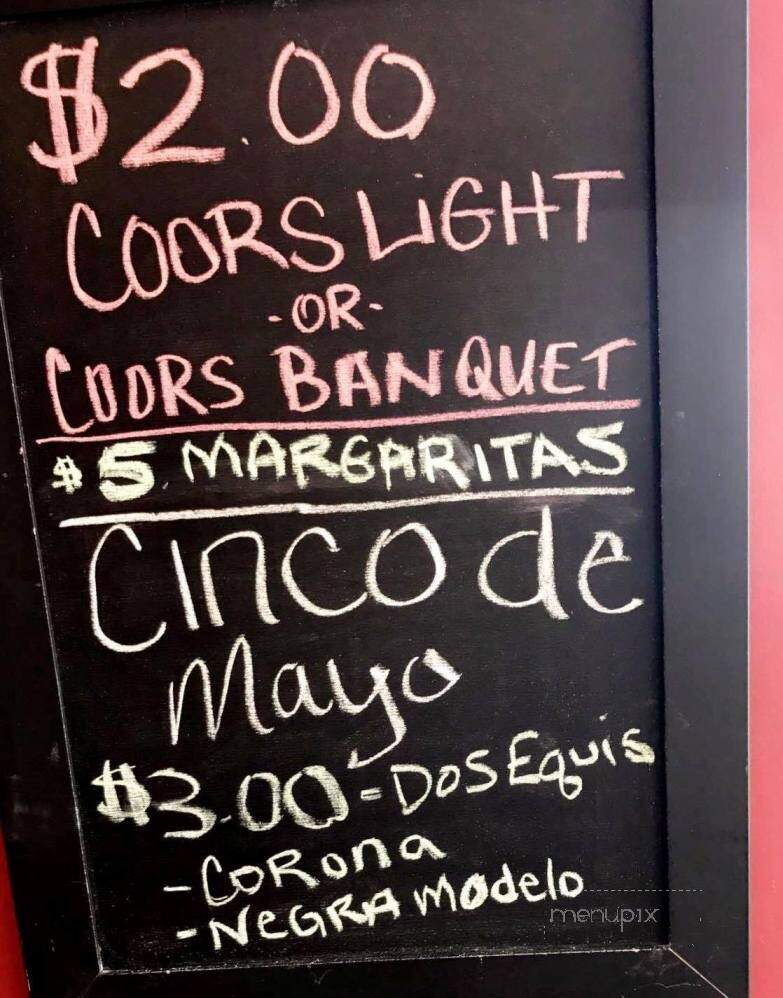 $2.00
COORS LiGHT
-OR-
COORS BANQUET
$5 MARGARITAS
Cinco de
Mayo
$3.00-Dos Equis
-CoRona
-NeGRA modelo
menupix